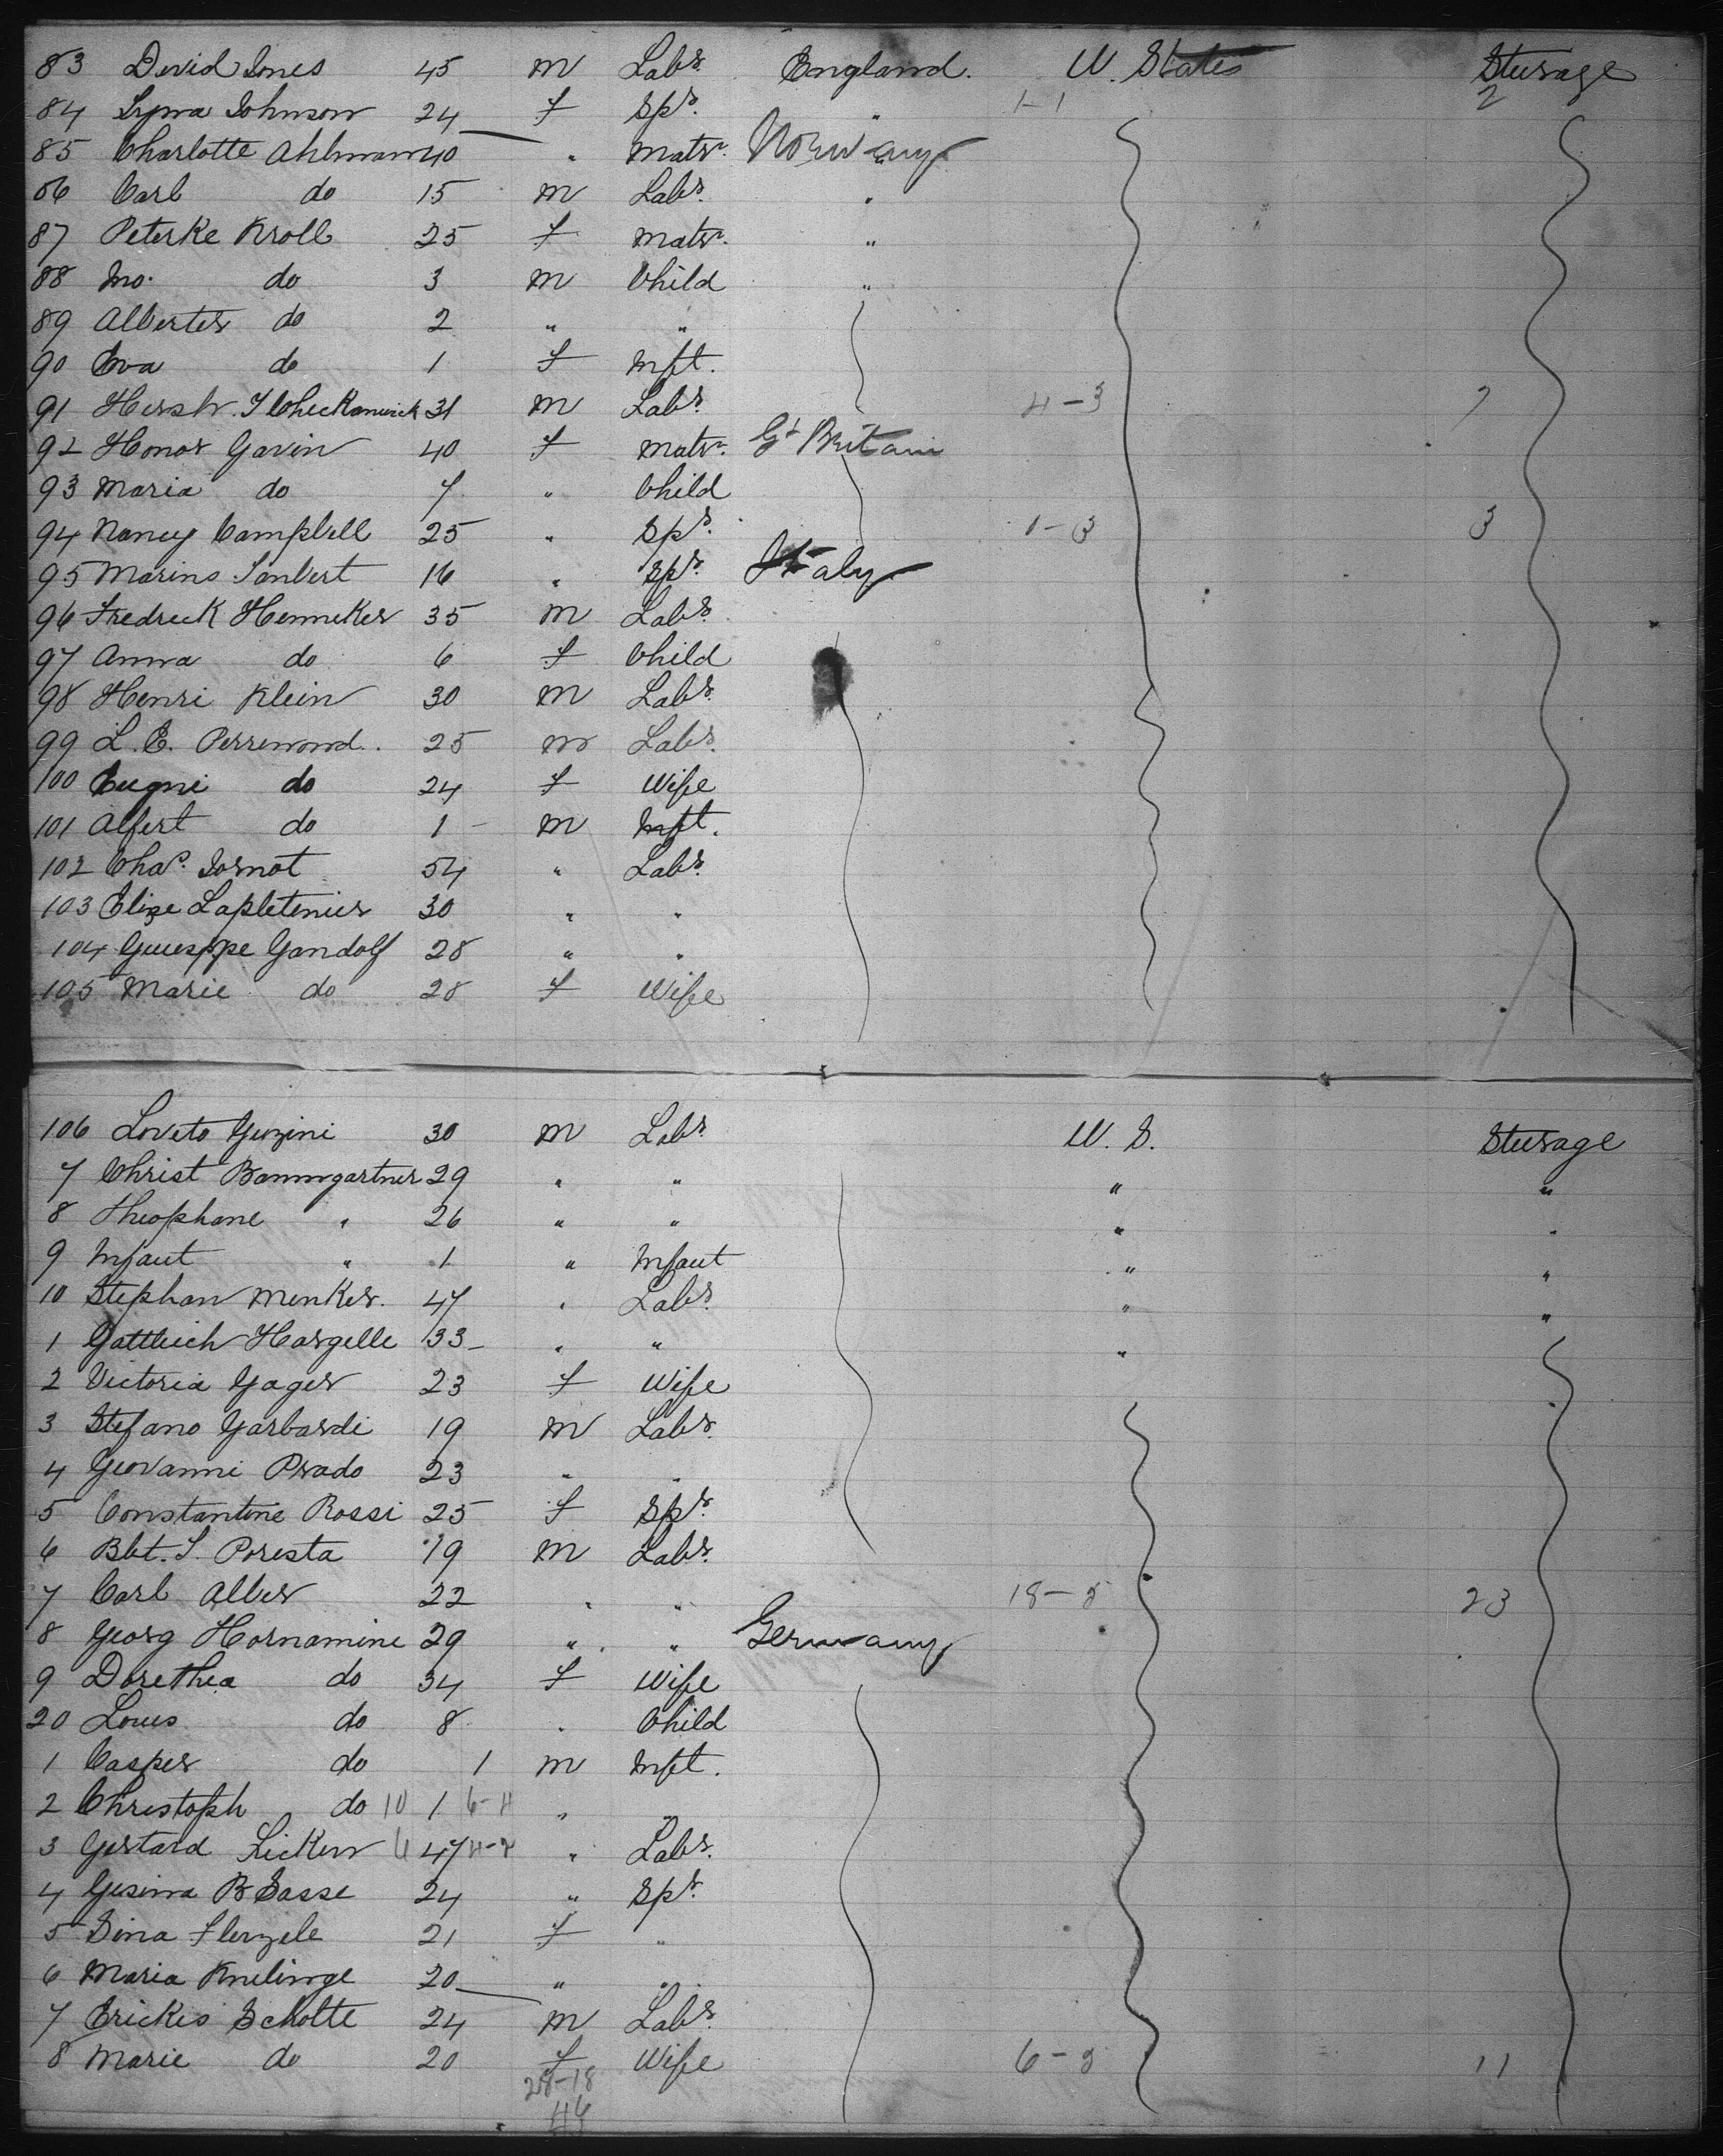 83 David Jones 45 m Labr. England. U. States Steerage
84 Lyna Johnson 24 f Spr. " 1-1 2
85 Charlotte Ahlmann 40 " Matr. Norway
86 Carl do 15 m Labr. "
87 Peterke Kroll 25 f Matr. "
88 Jno. do 3 m Child "
89 Alberter do 2 " "
90 Eva do 1 f Inft.
91 Hersh. I 31 m Labr. 4-3 7
92 Honor Gavin 40 f Matr. Gt Britain
93 Maria do 7 " Child
94 Nancy Campbell 25 " Spr. 1-3 3
95 Marins Janbert 16 " Spr. Italy
96 Fredreck Henneker 35 m Labr.
97 Anna do 6 f Child
98 Henri Klein 30 m Labr.
99 L. E. Perrenond. 25 m Labr.
100 Eugni do 24 f Wife
101 Alfert do 1 m Inft.
102 Chas. Jornot 54 " Labr.
103 Elize Lapletenier 30 " "
104 Guiesppe Gandolf 28 " "
105 Marie do 28 f Wife
106 Loveto Guizini 30 m Labr U. S. Steerage
7 Christ Baumgartner 29 " " " "
8 Theophane " 26 " " " "
9 Infant " 1 " Infant " "
10 Stephan Menker. 47 " Labr. " "
1 Gottleich Hargelle 33 " " "
2 Victoria Yager 23 f Wife
3 Stefano Garbardi 19 m Labr.
4 Geovanni Prado 23 " "
5 Constantine Rossi 25 f Spr.
6 Bbt. S. Poresta 19 m Labr.
7 Carl Alber 22 " " 18-5 23
8 Georg Hornamine 29 " " Germany
9 Dorethea do 34 f Wife
20 Louis do 8 " Child
1 Casper do 1 m Inft.
2 Christoph do 10 1 6-4 " "
3 Gertard Licken 6 47 4-2 " Labr.
4 Gesina B Sasse 24 " Spr.
5 Dina Flenzele 21 f "
6 Maria Knelinge 20 " "
7 Erickes Scholte 24 m Labr.
8 Marie do 20 f Wife 6-5 11
28-18
46